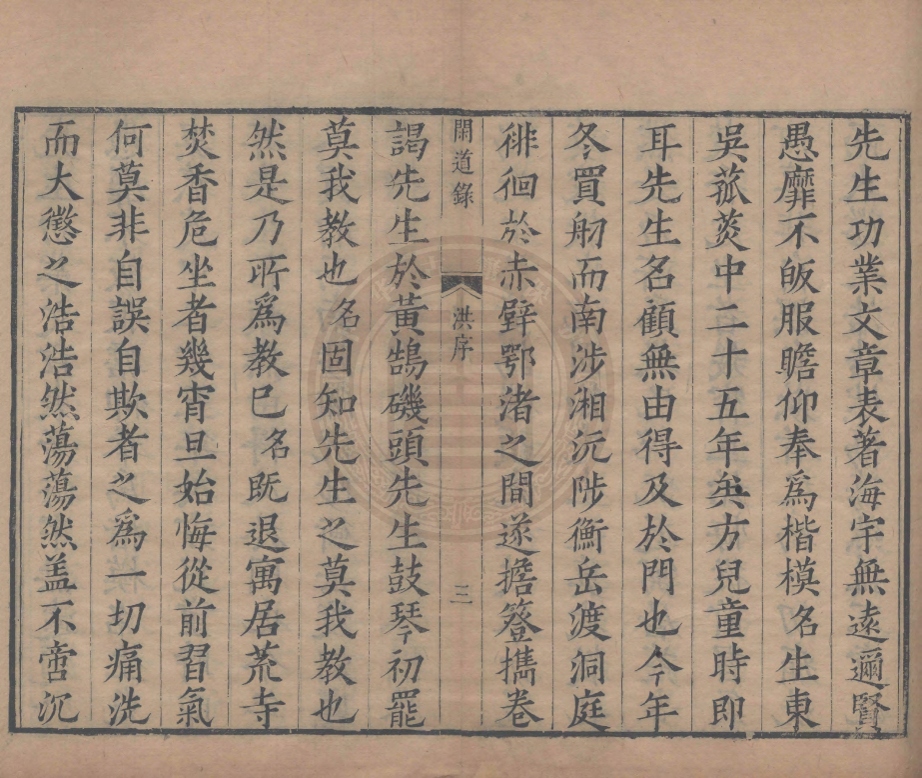 先生功業文章表著海宇無遠邇賢
愚靡不皈服瞻仰奉爲楷模名生東
吳菰茭中二十五年矣方兒童時即
耳先生名顧無由得及於門也今年
冬買舠而南涉湘沅陟衡岳渡洞庭
徘徊於赤壁鄂渚之間遂擔簦攜卷
閑道錄
洪序
二
謁先生於黃鵠磯頭先生鼓琴初罷
莫我教也名固知先生之莫我教也
然是乃所爲教已名既退寓居荒寺
焚香危坐者幾宵旦始悔從前習氣
何莫非自誤自欺者之爲一切痛洗
而大懲之浩浩然蕩蕩然盖不啻沉